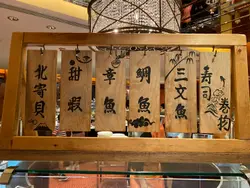 北寄貝
甜蝦
章魚
鯛魚
三文魚
壽司 卷物